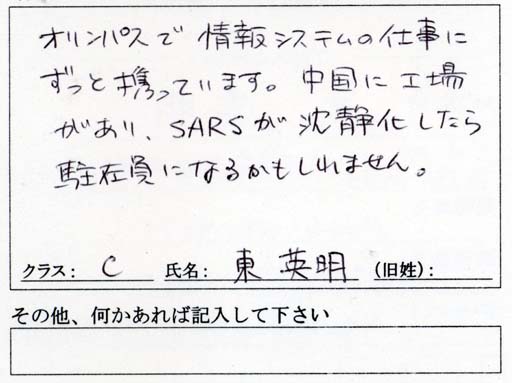 オリンパスで情報システムの仕事に
ずっと携っています。中国に工場
があり、SARSが沈静化したら
駐在員になるかもしれません。
クラス: C 氏名: 東 英明 (旧姓):
その他、何かあれば記入して下さい